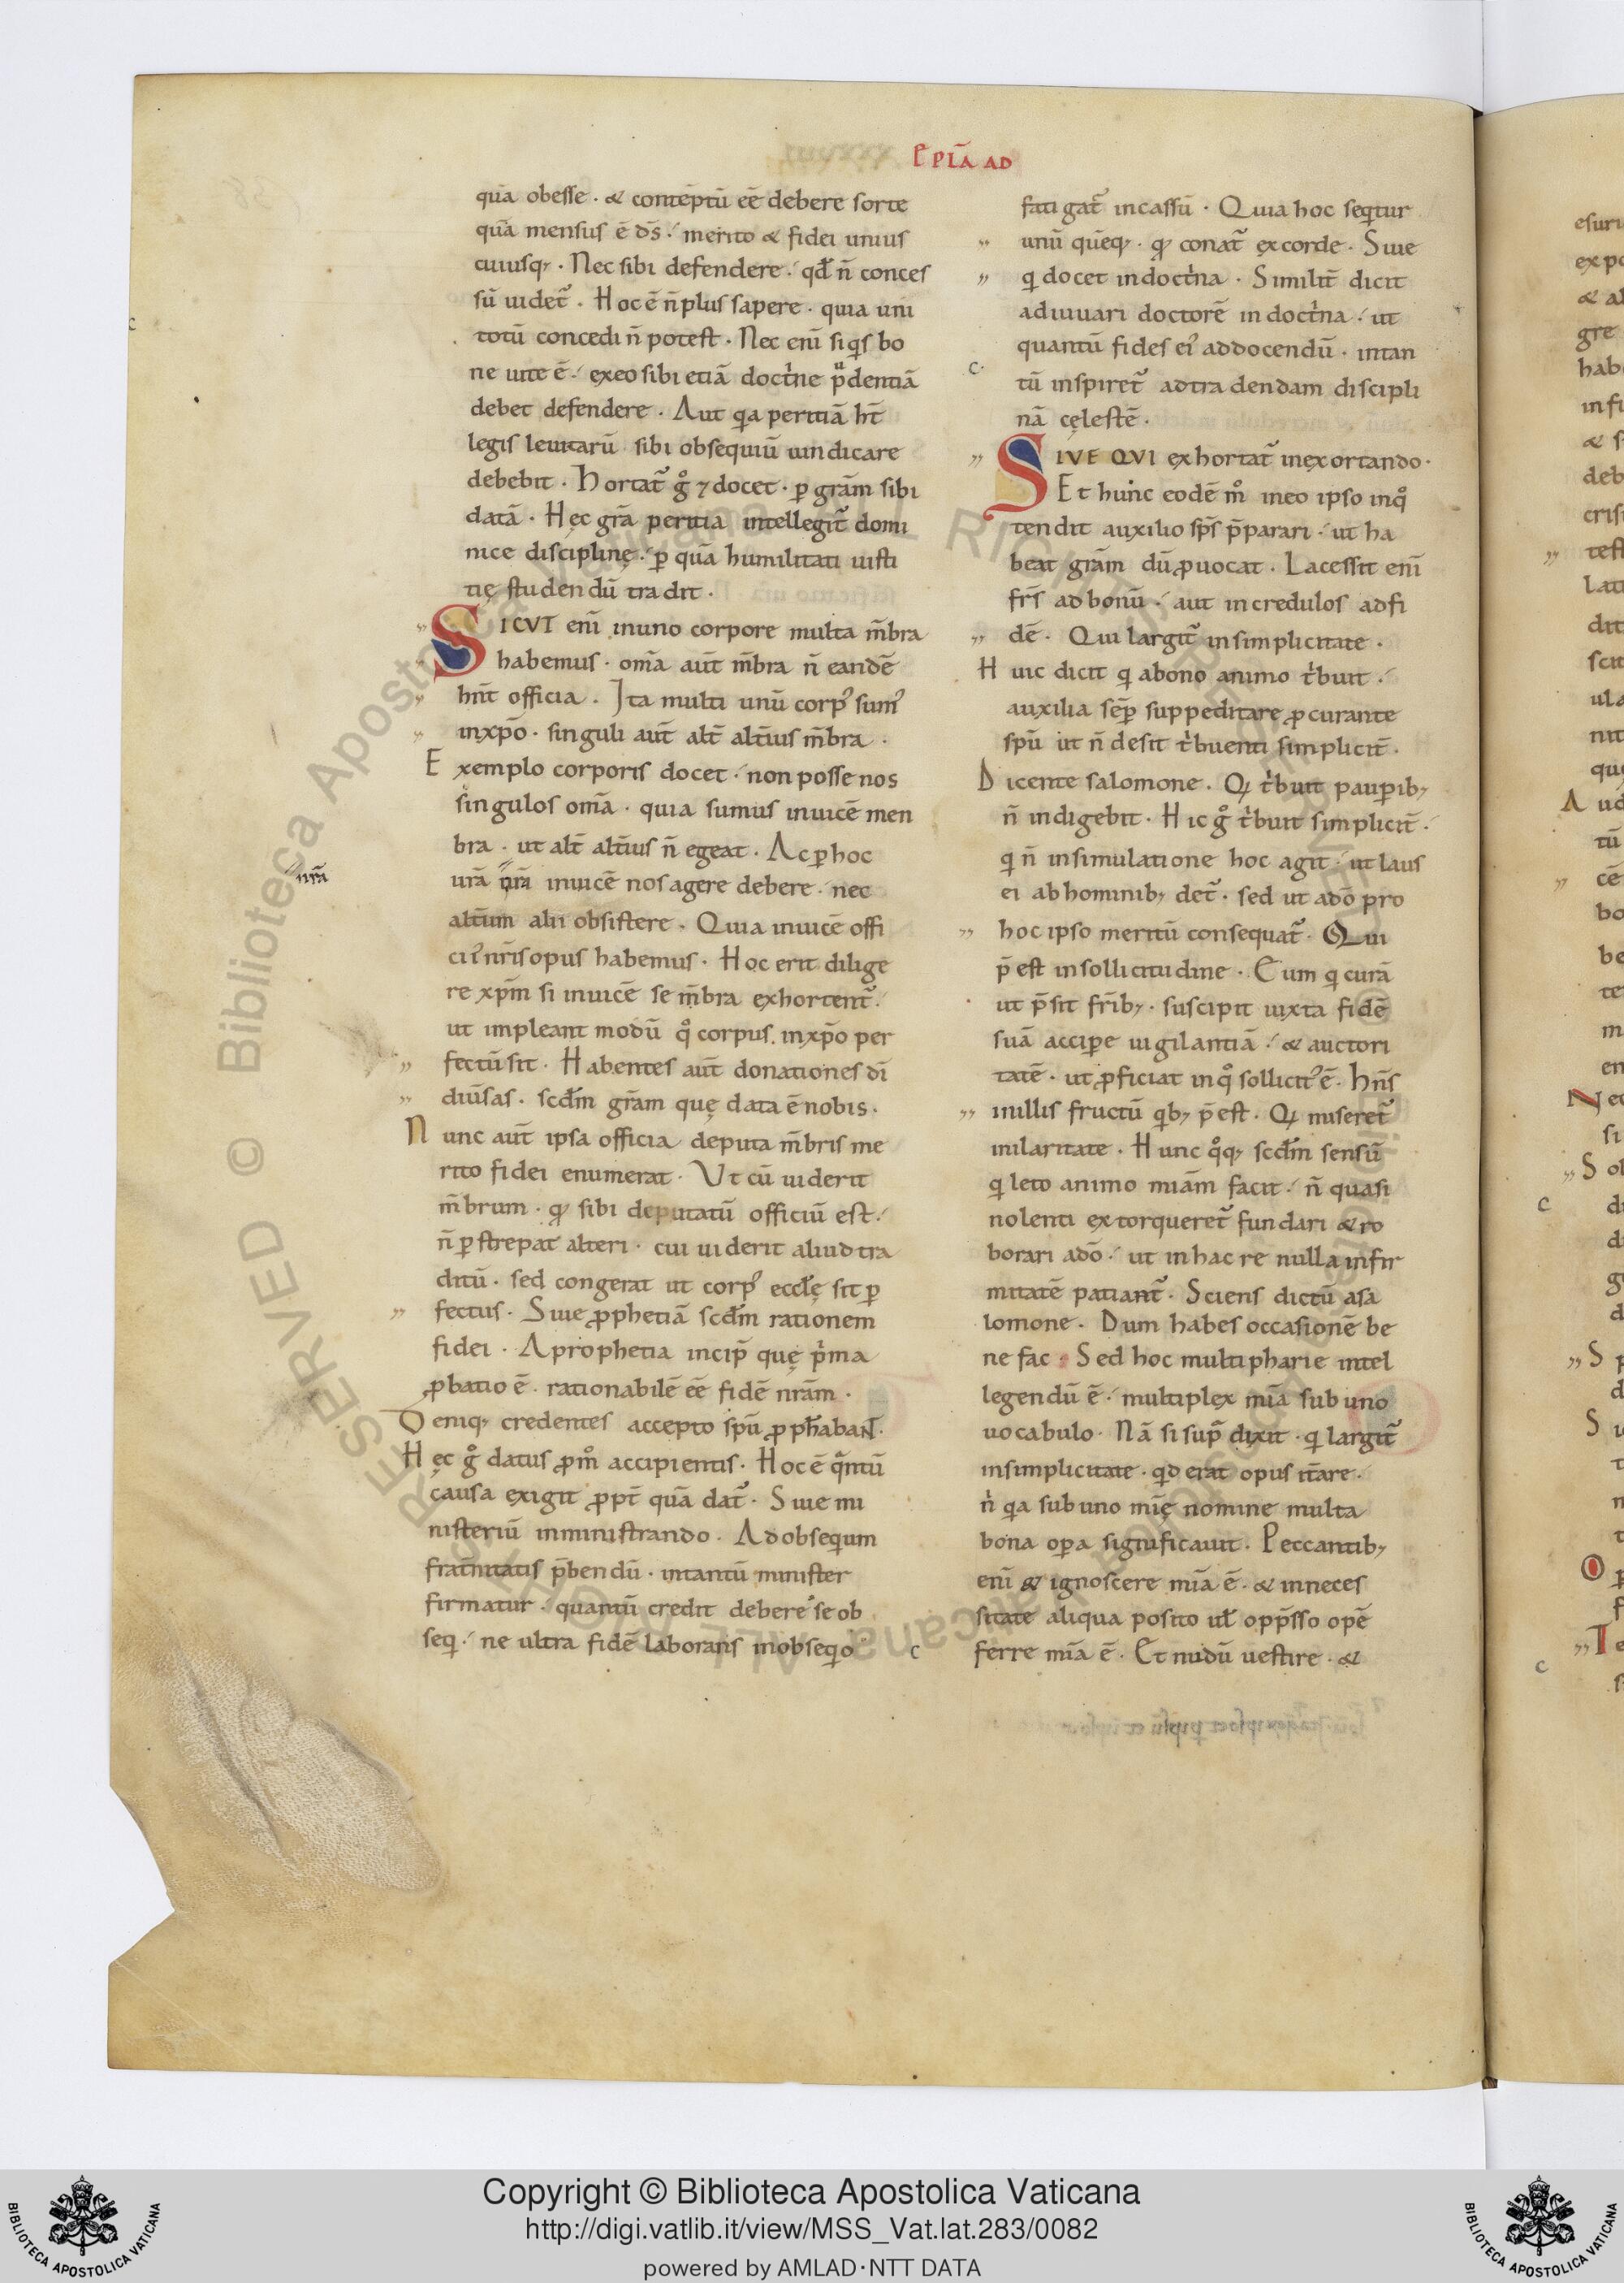 EPLA AD
quā obesse · & contēptū eē debere sorte
quā mensus ē ds̄ · merito & fidei unius
cuiusq; · Nec sibi defendere · qđ n̄ conces
sū uidet᷑ · Hoc ē n̄ plus sapere · quia uni
totū concedi n̄ potest · Nec enī siqͥs bo
ne uite ē · ex eo sibi etiā doctͥne pͬdentiā
debet defendere · Aut qͥa peritiā hт̄
legis leuitarū sibi obsequiū uindicare
debebit · Hortat᷑ gͦ ⁊ docet · ꝑ grām sibi
datā · Hęc grā peritia intellegit᷑ domi
nice disciplinę · ꝑ quā humilitati iusti
tię studendū tradit ·
SICVT enī in uno corpore multa m̄bra
habemus · om̄a aut̄ m̄bra n̄ eandē
hn̄t officia · Ita multi unū corpꝰ sumꝰ
in xp̄o · singuli aut̄ alt̄ alt̄ius m̄bra ·
Exemplo corporis docet · non posse nos
singulos om̄a · quia sumus inuicē men
bra · ut alt̄ alt̄ius n̄ egeat · Ac ꝑ hoc
nr̄ā
urā nrā inuicē nos agere debere · nec
alt̄um alii obsistere · Quia inuicē offi
ciꝰ nr̄is opus habemus · Hoc erit dilige
re xp̄m si inuicē se m̄bra exhortent᷑ ·
ut impleant modū qͦ corpus in xp̄o per
fectū sit · Habentes aut̄ donationes dī
diūsas · scd̄m grām quę data ē nobis ·
Nunc aut̄ ipsa officia deputa m̄bris me
rito fidei enumerat · Vt cū uiderit
m̄brum · qͩ sibi deputatū officiū est ·
n̄ ꝑstrepat alteri · cui uiderit aliud tra
ditū · sed congerat ut corpꝰ eccłę sit ꝑ
fectus · Siue ꝓphetiā scd̄m rationem
fidei · A prophetia incip̄ quę pͥma
ꝓbatio ē · rationabilē eē fidē nrām ·
Deniq; credentes accepto sp̄u ꝓph̄abant ·
Hęc gͦ datus ꝓ mͦ accipientis · Hoc ē qͣntū
causa exigit ꝓpt̄ quā dat᷑ · Siue mi
nisteriū in ministrando · Ad obseqͥum
frat̄nitatis p̄bendū · intantū minister
firmatur · quantū credit debere se ob
seqͥ · ne ultra fidē laborans in obseqͥo
fatigat᷑ incassū · Quia hoc seqͥtur
unū quēq; · qͩ conat᷑ ex corde · Siue
qͥ docet in doctͥna · Similit̄ dicit
adiuuari doctorē in doctͥna · ut
quantū fides eiꝰ ad docendū · intan
tū inspiret᷑ ad tradendam discipli
nā cęlestē ·
SIVE QVI exhortat᷑ in exortando ·
Et hunc eodē mͦ in eo ipso inqͦ
tendit auxilio sp̄s p̄parari · ut ha
beat grām dū ꝓuocat · Lacessit enī
fr̄s ad bonū · aut incredulos ad fi
dē · Qui largit᷑ in simplicitate ·
Huic dicit qͥ a bono animo tͥbuit ·
auxilia sēꝑ suppeditare ꝓcurante
sp̄u ut n̄ desit tͥbuenti simplicit̄ ·
Dicente salomone · Qͥ tͥbuit pauꝑib;
n̄ indigebit · Hic gͦ tͥbuit simplicit̄ ·
qͥ n̄ in simulatione hoc agit · ut laus
ei ab hominib; det᷑ · sed ut a dō pro
hoc ipso meritū consequat᷑ · Qui
p̄est in sollicitudine · Cum qͥ curā
ut p̄sit fr̄ib; · suscipit iuxta fidē
suā acciꝑe uigilantiā · & auctori
tatē · ut ꝓficiat in qͦ sollicitꝰ ē · hn̄s
in illis fructū qͥb; p̄est · Qͥ miseret᷑
in ilaritate · Hunc qͦq; scd̄m sensū
qͥ leto animo miām facit · n̄ quasi
nolenti extorqueret᷑ fundari & ro
borari a dō · ut in hac re nulla infir
mitatē patiant᷑ · Sciens dictū a sa
lomone · Dum habes occasionē be
ne fac · Sed hoc multipharie intel
legendū ē · multiplex mīa sub uno
uocabulo · Nā si supͣ dixit · qͥ largit᷑
in simplicitate · qͥd erat opus it̄are ·
nͥ qͥa sub uno mīę nomine multa
bona oꝑa significauit · Peccantib;
enī & ignoscere mīa ē · & in neces
sitate aliqua posito uł opp̄sso opē
ferre mīa ē · Et nudū uestire · &
Copyright © Biblioteca Apostolica Vaticana
http://digi.vatlib.it/view/MSS_Vat.lat.283/0082
powered by AMLAD·NTT DATA